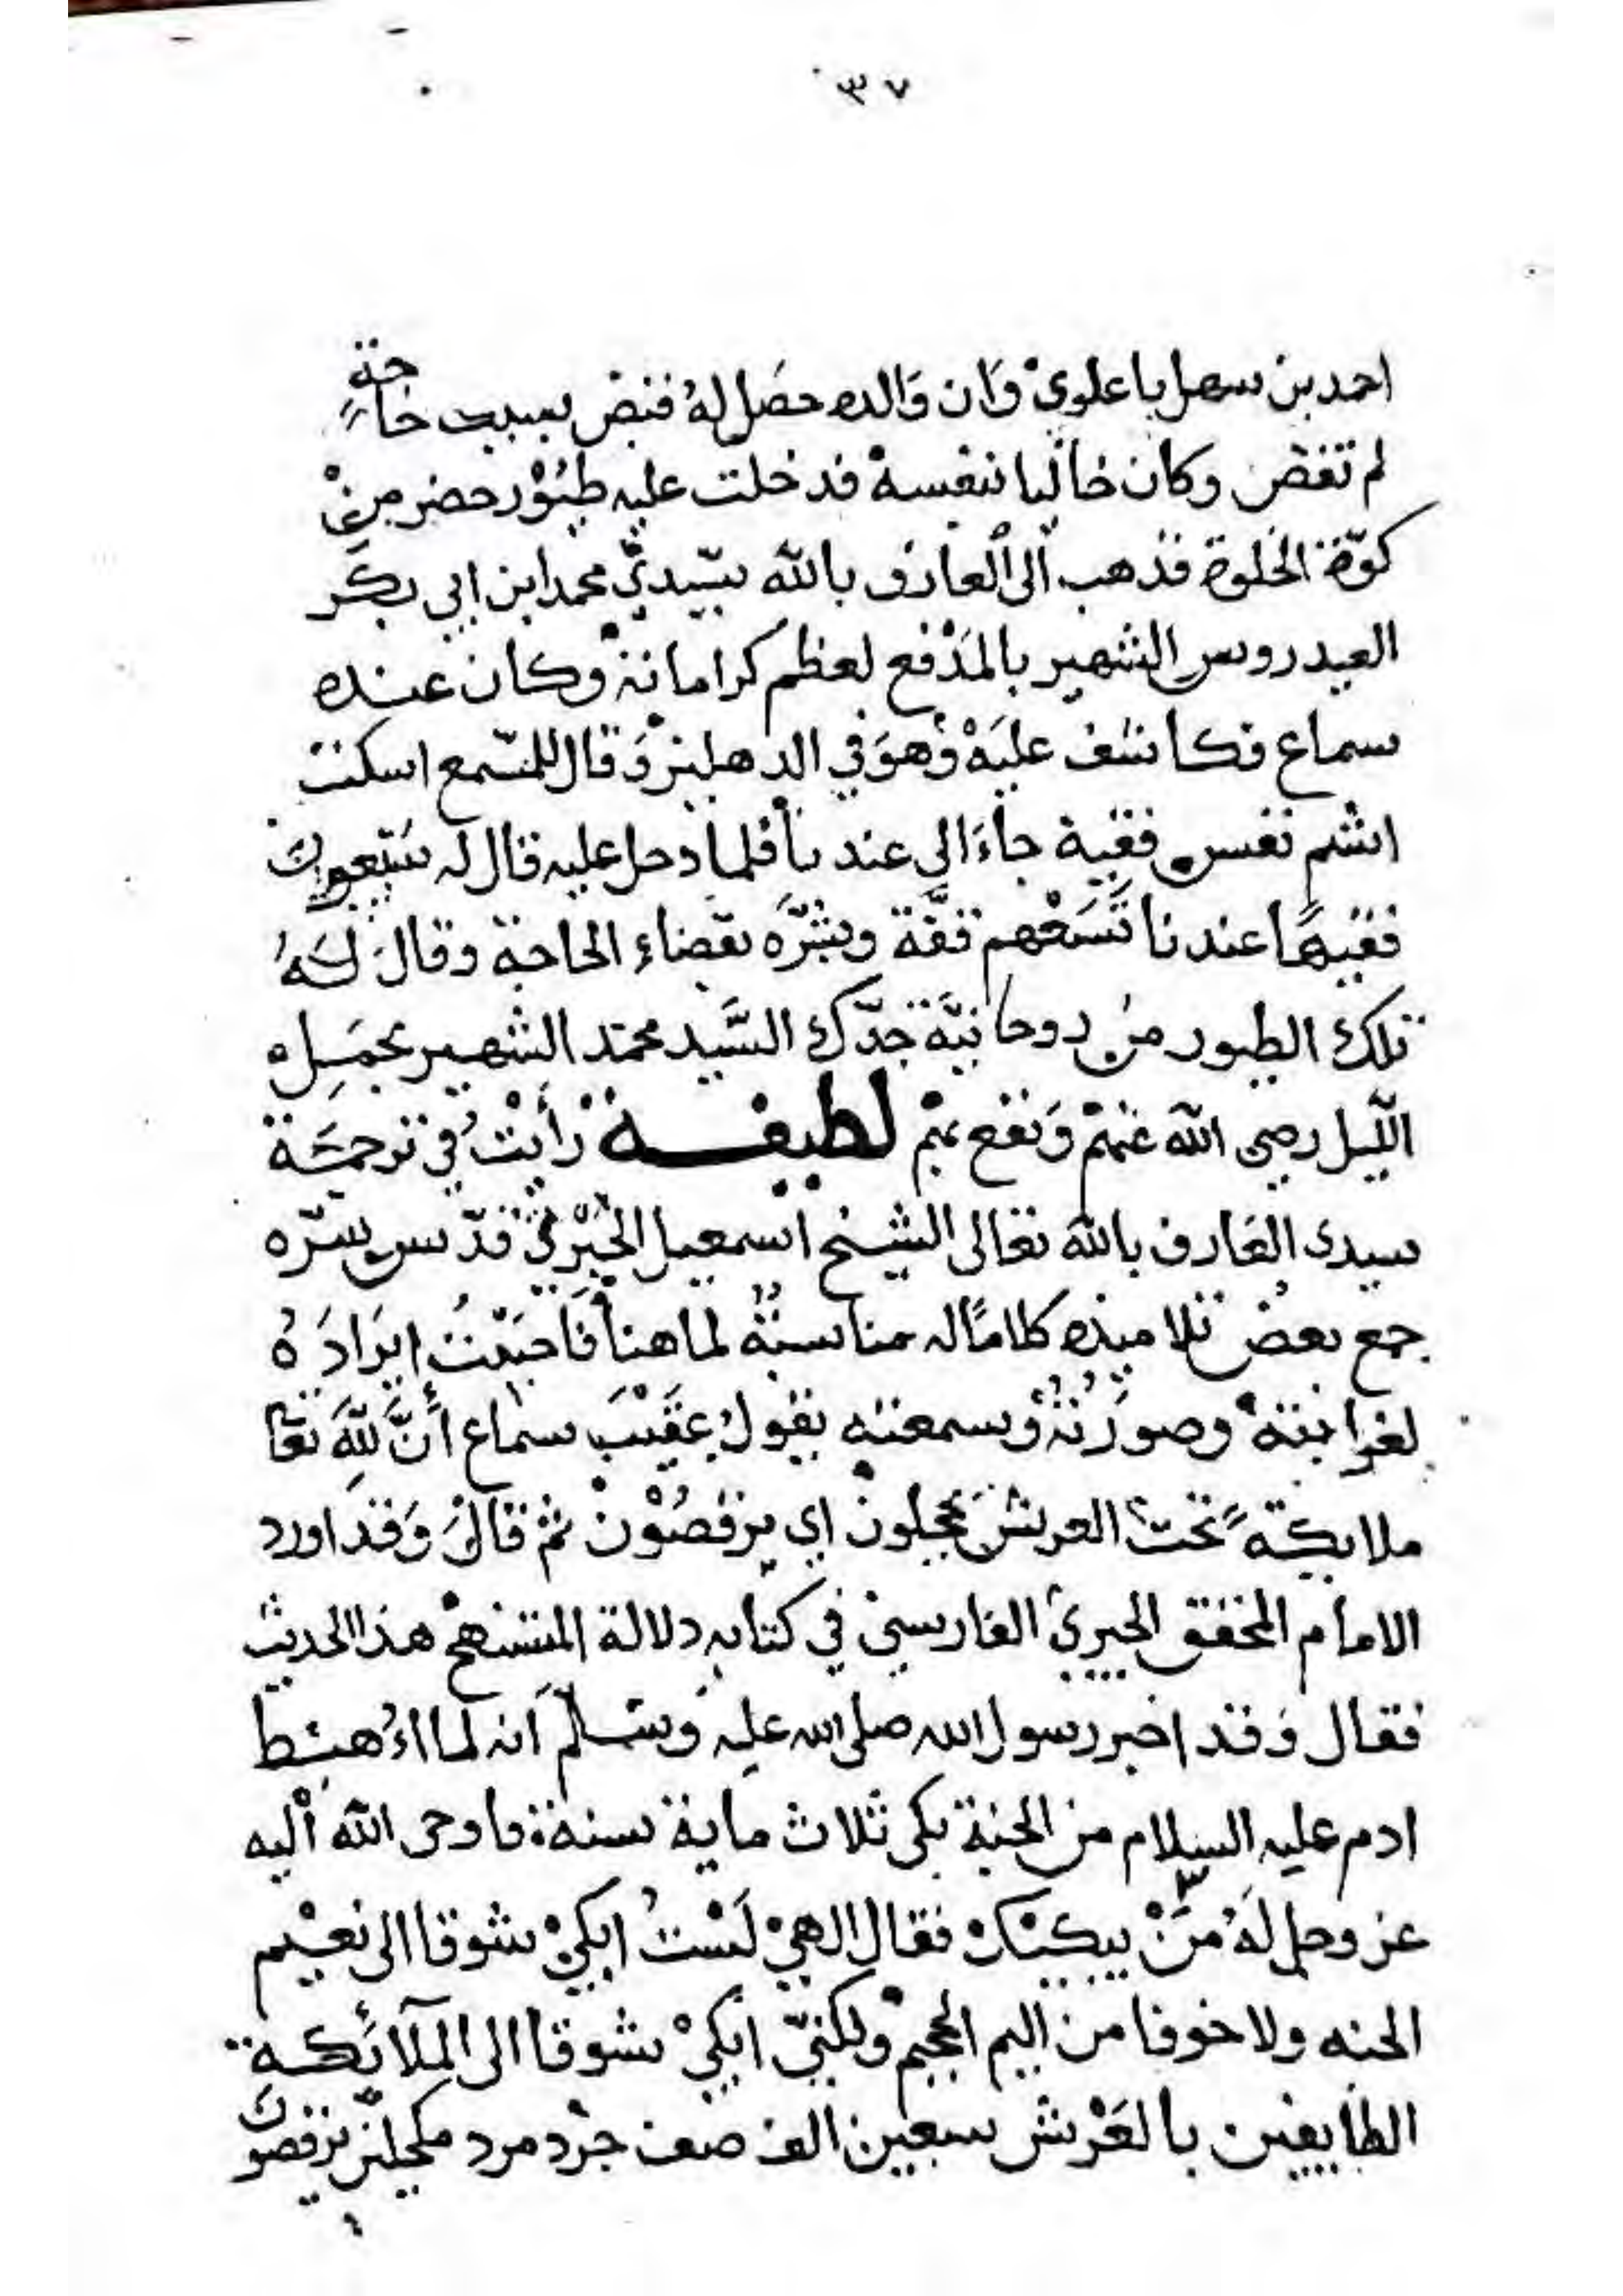 ٣٧
احمد بن سهل باعلوي وان والده حصل له قبض بسبب حاجة
لم تقض وكان خاليا بنفسه فدخلت عليه طيور خضر من
كوّة الخلوة فذهب الى العارف بالله سيدي محمد ابن ابي بكر
العيدروس الشهير بالمدفع لعظم كراماته وكان عنده
سماع فكاشف عليه وهو في الدهليز وقال للمسمع اسكت
اشم نفس فقيه جاء الى عندنا فلما دخل عليه قال له
فقيها عندنا وبشّره بقضاء الحاجة وقال له
تلك الطيور من روحانيّة جدّك السّيد محمد الشهير بجمل
اللّيل رضى الله عنهم ونفع بهم لطيفة رأيت في ترجمة
سيدى العارف بالله تعالى الشيخ اسمعيل الجبرتي قدّس سرّه
جمع بعض تلاميذه كلامًا له مناسبة لما هنا فاحببت ايراده
لغرابته وصورته وسمعته يقول عقيب سماع أنّ لله تعا
ملايكة تحت العرش يحجلون اي يرقصون ثم قال وقد اورد
الامام المحقق الفارسي في كتابه دلالة المستنهج هذا الحديث
فقال وقد اخبر رسول الله صلى الله عليه وسلّم انه لما اُهبط
ادم عليه السلام من الجنة بكى ثلاث ماية سنة فاوحى الله اليه
عز وجل له من يبكيك فقال الهي لست ابكي شوقا الى نعيم
الجنه ولا خوفا من اليم الجحيم ولكنّي ابكي شوقا الى الملآئكة
الطايفين بالعرش سبعين الف صف جرد مرد مكحلين يرقصون